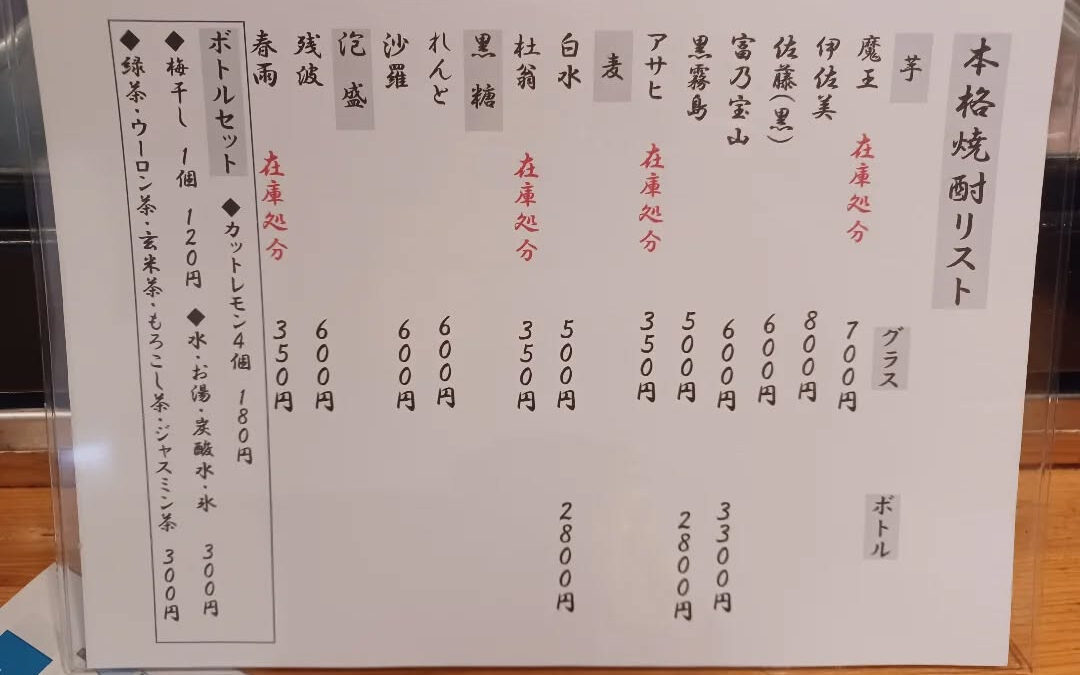 本格焼酎リスト
グラス
ボトル
芋
魔王 在庫処分 700円
伊佐美 800円
佐藤(黒) 600円
富乃宝山 600円 3300円
黒霧島 500円 2800円
アサヒ 在庫処分 350円
麦
白水 500円 2800円
杜翁 在庫処分 350円
黒糖
れんと 600円
沙羅 600円
泡盛
残波 600円
春雨 在庫処分 350円
ボトルセット
◆カットレモン4個 180円
◆梅干し 1個 120円
◆水・お湯・炭酸水・氷 300円
◆緑茶・ウーロン茶・玄米茶・もろこし茶・ジャスミン茶 300円